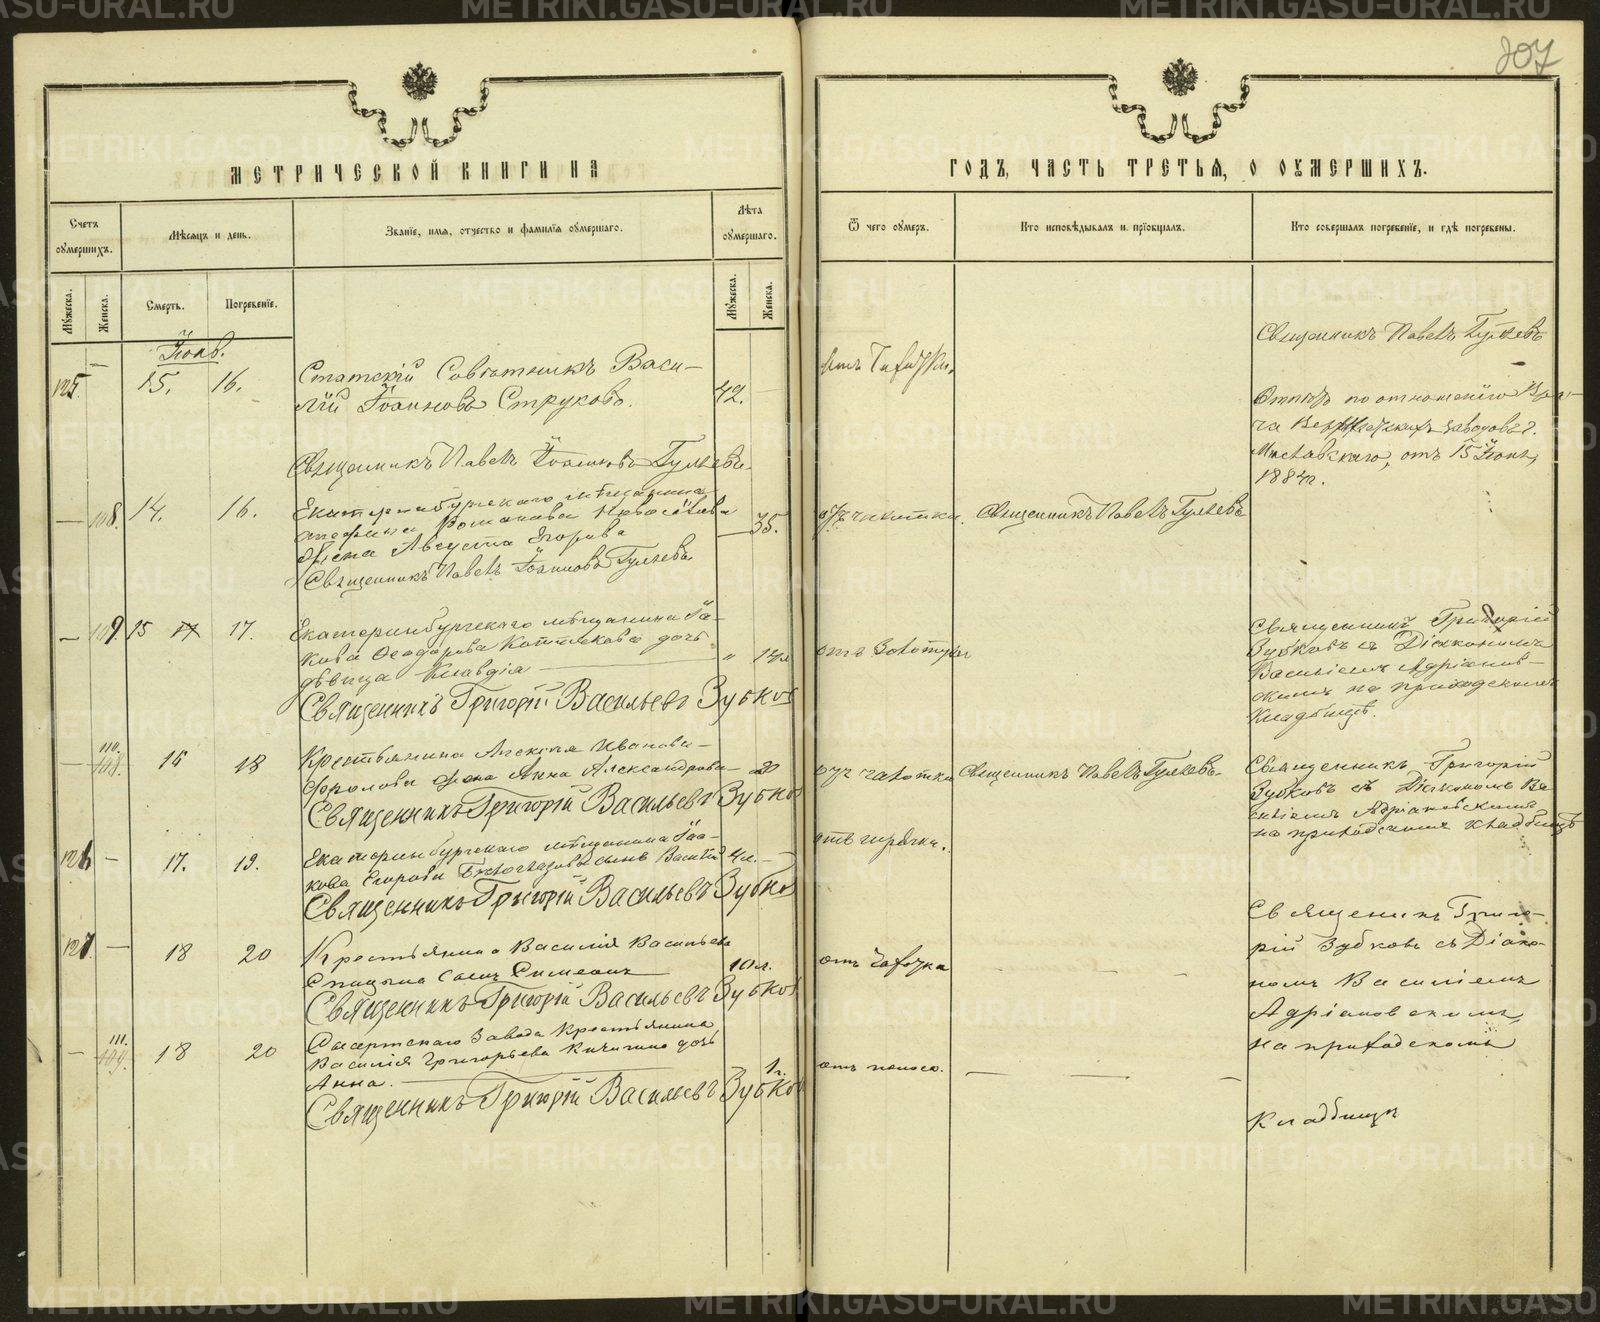 207
МЕТРИЧЕСКОЙ КНИГИ НА
ГОДЪ, ЧАСТЬ ТРЕТЬЯ, О ОУМЕРШИХЪ.
Счетъ оумершихъ.
Мѣсяцъ и день.
Званіе, имя, отчество и фамилія оумершаго.
Лѣта оумершаго.
Ѿ чего оумеръ.
Кто исповѣдывалъ и пріобщалъ.
Кто совершалъ погребеніе, и гдѣ погребены.
Мужеска.
Женска.
Смерть.
Погребеніе.
Мужеска.
Женска.
Іюнь.
125. — 15. 16. Статскій Совѣтникъ Васи-
лій Іоанновъ Струковъ. 42.
Священникъ Павелъ Іоанновъ Гуляевъ
Священникъ Павелъ Гуляевъ
по отношенію Вра-
ча заводовъ г.
отъ 15 Іюня,
1884г.
— 108. 14. 16. Екатеринбургскаго мѣщанина
Романова Новоселова
жена Августа Егорова — 35. отъ чахотки. Священникъ Павелъ Гуляевъ
Священникъ Павелъ Іоанновъ Гуляевъ
— 109. 15 17 17. Екатеринбургскаго мѣщанина Іа-
кова Ѳеодорова дочь
дѣвица Клавдія " отъ золотухи
Священникъ Григорій Васильевъ Зубков
Священникъ Григорій
Зубковъ съ Діакономъ
Василіемъ Адріанов-
скимъ на приходскомъ
кладбищѣ.
— 110. 108. 15 18 Крестьянина Алексѣя Иванова
Фролова жена Анна Александрова 20 отъ чахотки Священникъ Павелъ Гуляевъ
Священникъ Григорій Васильевъ Зубков
Священникъ Григорій
Зубковъ съ Діакономъ Ва
силіемъ Адріановскимъ
на приходскомъ кладбищѣ
126 — 17. 19. Екатеринбургскаго мѣщанина Іоа-
кова Егорова Бѣлоглазова сынъ Василій 4л. — отъ горячки.
Священникъ Григорій Васильевъ Зубков
127. — 18 20 Крестьянина Василія Васильева
Спицына сынъ Симеонъ 10л. отъ чахотки
Священникъ Григорій Васильевъ Зубков
Священникъ Григо-
рій Зубковъ съ Діако-
номъ Василіемъ
Адріановскимъ,
на приходскомъ
кладбищѣ
— 111. 109. 18 20 Сысертскаго Завода крестьянина
Василія Григорьева Кичигина дочь
Анна. 1г. отъ поноса.
Священникъ Григорій Васильевъ Зубков
METRIKI.GASO-URAL.RU